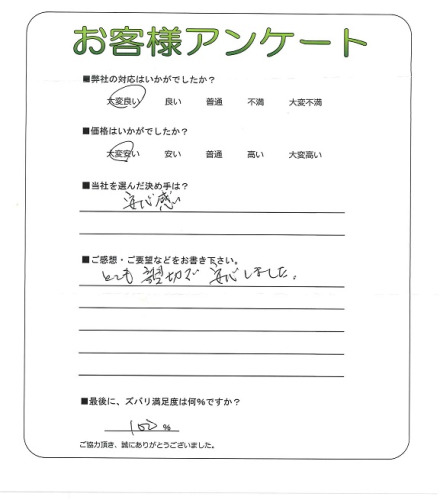 お客様アンケート
■弊社の対応はいかがでしたか？
大変良い 良い 普通 不満 大変不満
■価格はいかがでしたか？
大変安い 安い 普通 高い 大変高い
■当社を選んだ決め手は？
安心感
■ご感想・ご要望などをお書き下さい。
とても親切で安心しました。
■最後に、ズバリ満足度は何％ですか？
100％
ご協力頂き、誠にありがとうございました。